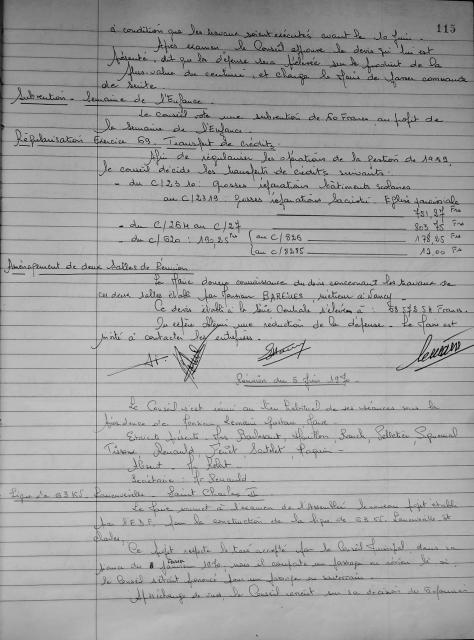 115
à condition que les travaux soient exécutés avant le 10 Juin.
Après examen, le Conseil approuve le devis qui lui est
présenté, dit que la dépense sera prélevée sur le produit de la
Plus-value du centime, et charge le Maire de passer commande
de suite.
Subvention - Semaine de l'Enfance.
Le Conseil vote une subvention de 50 Francs au profit de
la Semaine de l'Enfance.
Régularisation Exercice 69. Transfert de crédits.
Afin de régulariser les opérations de la Gestion de 1969,
le Conseil décide les transferts de crédits suivants :
- du C/2310 : Grosses réparations bâtiments scolaires
au C/2319 : Grosses réparations Eglise paroissiale
751,27 Frs
- du C/264 au C/27 803,75 Frs
- du C/620 : 190,25 Frs au C/826 178,25 Frs
au C/8285 12,00 Frs
Aménagement de deux Salles de Réunion.
Le Maire donne connaissance du devis concernant les travaux de
ces deux salles établi par Monsieur métreur à Nancy.
Ce devis s'élève à : 58 578,54 Francs.
obtenir une réduction de la dépense. Le Maire est
invité à contacter les entreprises.
Réunion du 5 Juin 1970.
Le Conseil s'est réuni au lieu habituel de ses séances sous la
Présidence de Monsieur Romain Maire
Etaient présents
Absent
Secrétaire : Mr Renauld
Ligne de 63 KV. Laneuveville - Saint Charles II
Le Maire soumet à l'examen de l'Assemblée le nouveau projet établi
par l'E.D.F. pour la construction de la ligne de 63 KV. Laneuveville St
Charles.
Ce projet respecte le tracé accepté par le Conseil Municipal dans sa
séance du 1970, mais il comporte un passage en aérien là où
le Conseil s'était prononcé pour un passage en souterrain.
Après échange de vues, le Conseil revient sur sa décision du